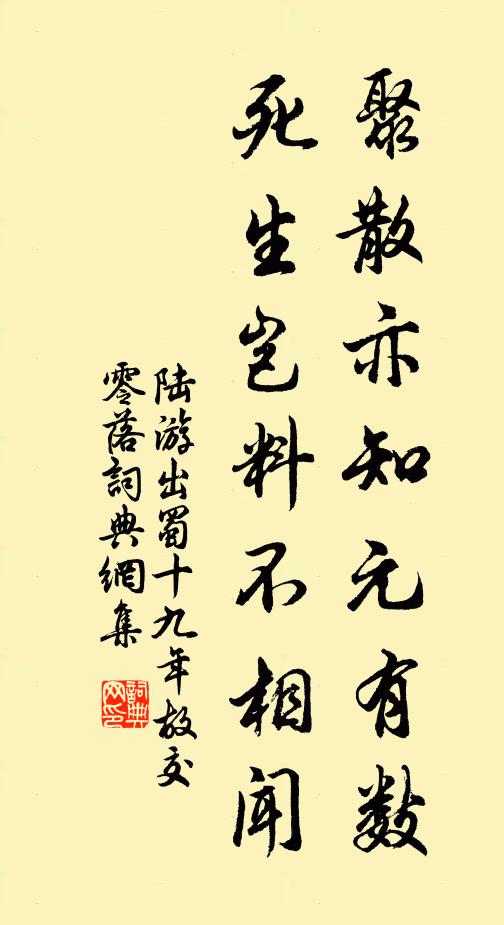 聚散亦知元有数
死生岂料不相闻
陆游出蜀十九年故交
零落詞典網集
詞典
网印